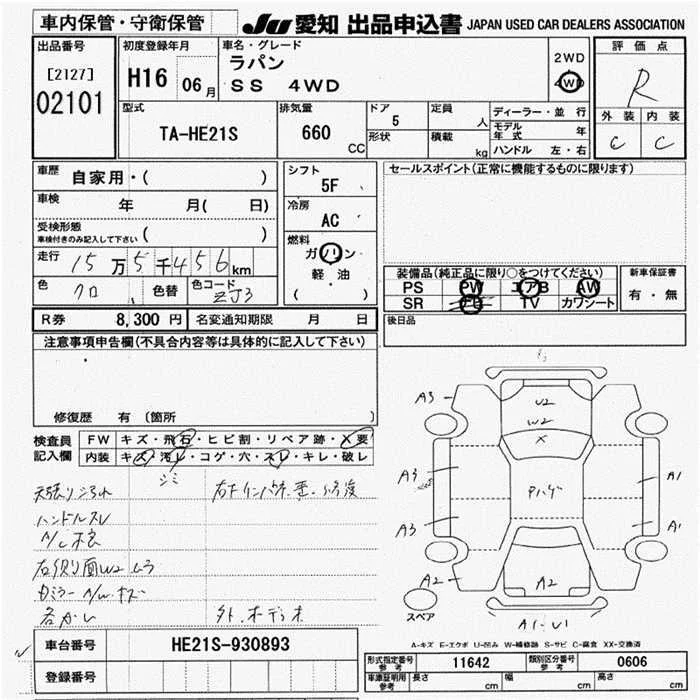 車内保管・守衛保管
JU 愛知 出品申込書 JAPAN USED CAR DEALERS ASSOCIATION
出品番号
[2127]
02101
初度登録年月
H16 06月
車名・グレード
ラパン
SS 4WD
2WD
4WD
評価点
R
外装 内装
C C
型式
TA-HE21S
排気量
660
CC
ドア
5
形状
定員
人
積載
kg
ディーラー・並行
モデル年式 年
ハンドル 左・右
車歴 自家用・( )
車検 年 月( 日)
受検形態
車検付きのみ記入して下さい ( )
走行 15万5千456km
色 クロ 色替 色コード ZJ3
シフト
5F
冷房
AC
燃料
ガソリン
軽・油
( )
セールスポイント(正常に機能するものに限ります)
装備品(純正品に限り○をつけてください)
PS PW エアB AW
SR ナビ TV カワシート
新車保証書
有・無
R券 8,300 円 名変通知期限 月 日
後日品
注意事項申告欄(不具合内容等は具体的に記入して下さい)
修復歴 有 〔箇所
検査員
記入欄
FW キズ・飛石・ヒビ割・リペア跡・X要
内装 キズ・汚レ・コゲ・穴・スレ・キレ・破レ
シミ
天張りヨゴレ
ハンドルスレ
A/C不良
右側面W2ムラ
各カシ
外.オーディオ
A3
A3
A3
A2
U2
W2
X
A1
A1
A2
A1-U1
スペア
A-キズ E-エクボ U-凹み W-補修跡 S-サビ C-腐食 XX-交換済
車台番号 HE21S-930893
登録番号
形式指定番号
参考
11642
類別区分番号
参考
0606
車庫証明用
参考
長さ cm 幅 cm 高さ cm